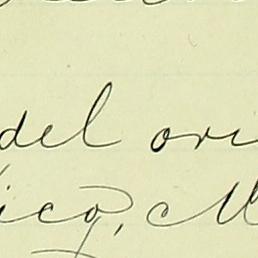 del ori
ico, M